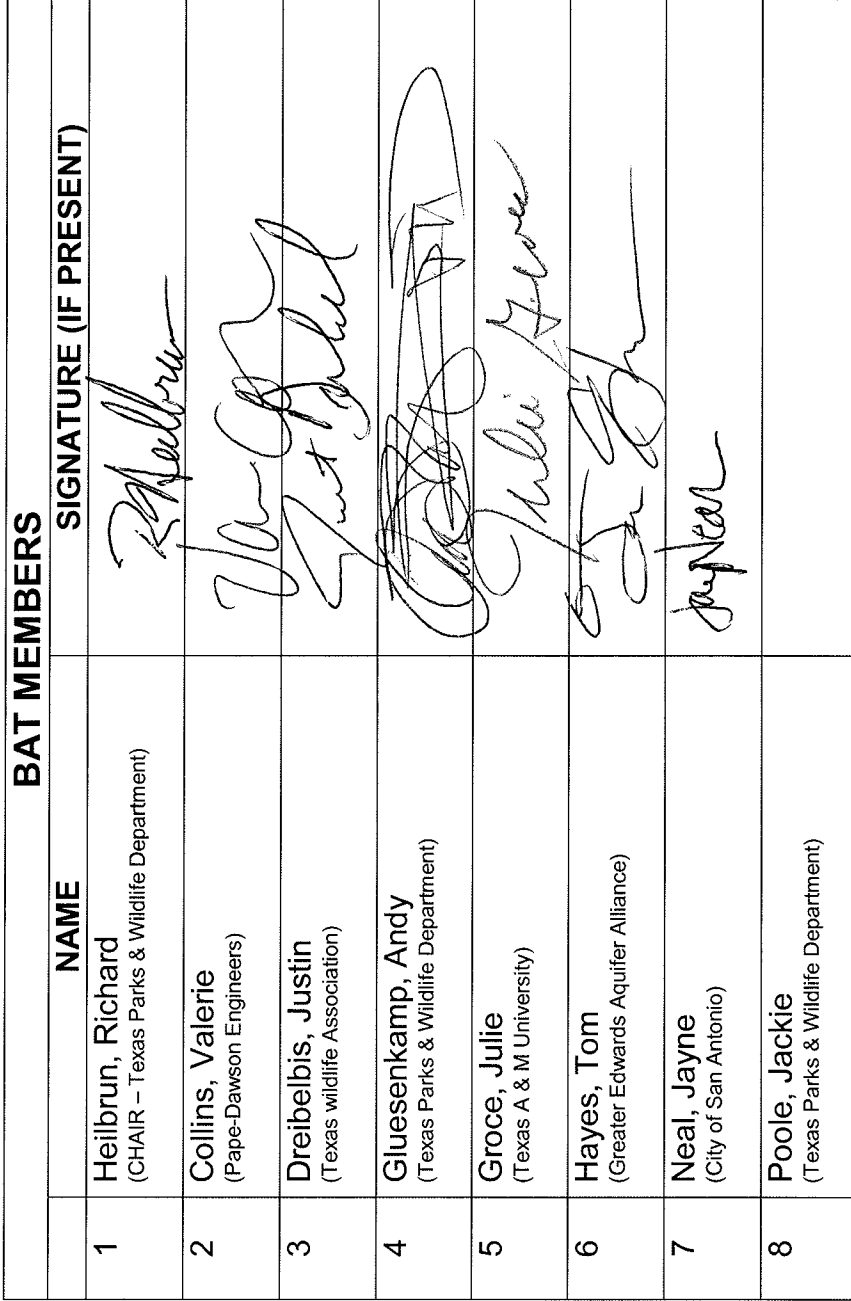 BAT MEMBERS
NAME SIGNATURE (IF PRESENT)
1 Heilbrun, Richard
(CHAIR – Texas Parks & Wildlife Department)
2 Collins, Valerie
(Pape-Dawson Engineers)
3 Dreibelbis, Justin
(Texas wildlife Association)
4 Gluesenkamp, Andy
(Texas Parks & Wildlife Department)
5 Groce, Julie
(Texas A & M University)
Julie Groce
6 Hayes, Tom
(Greater Edwards Aquifer Alliance)
7 Neal, Jayne
(City of San Antonio)
8 Poole, Jackie
(Texas Parks & Wildlife Department)